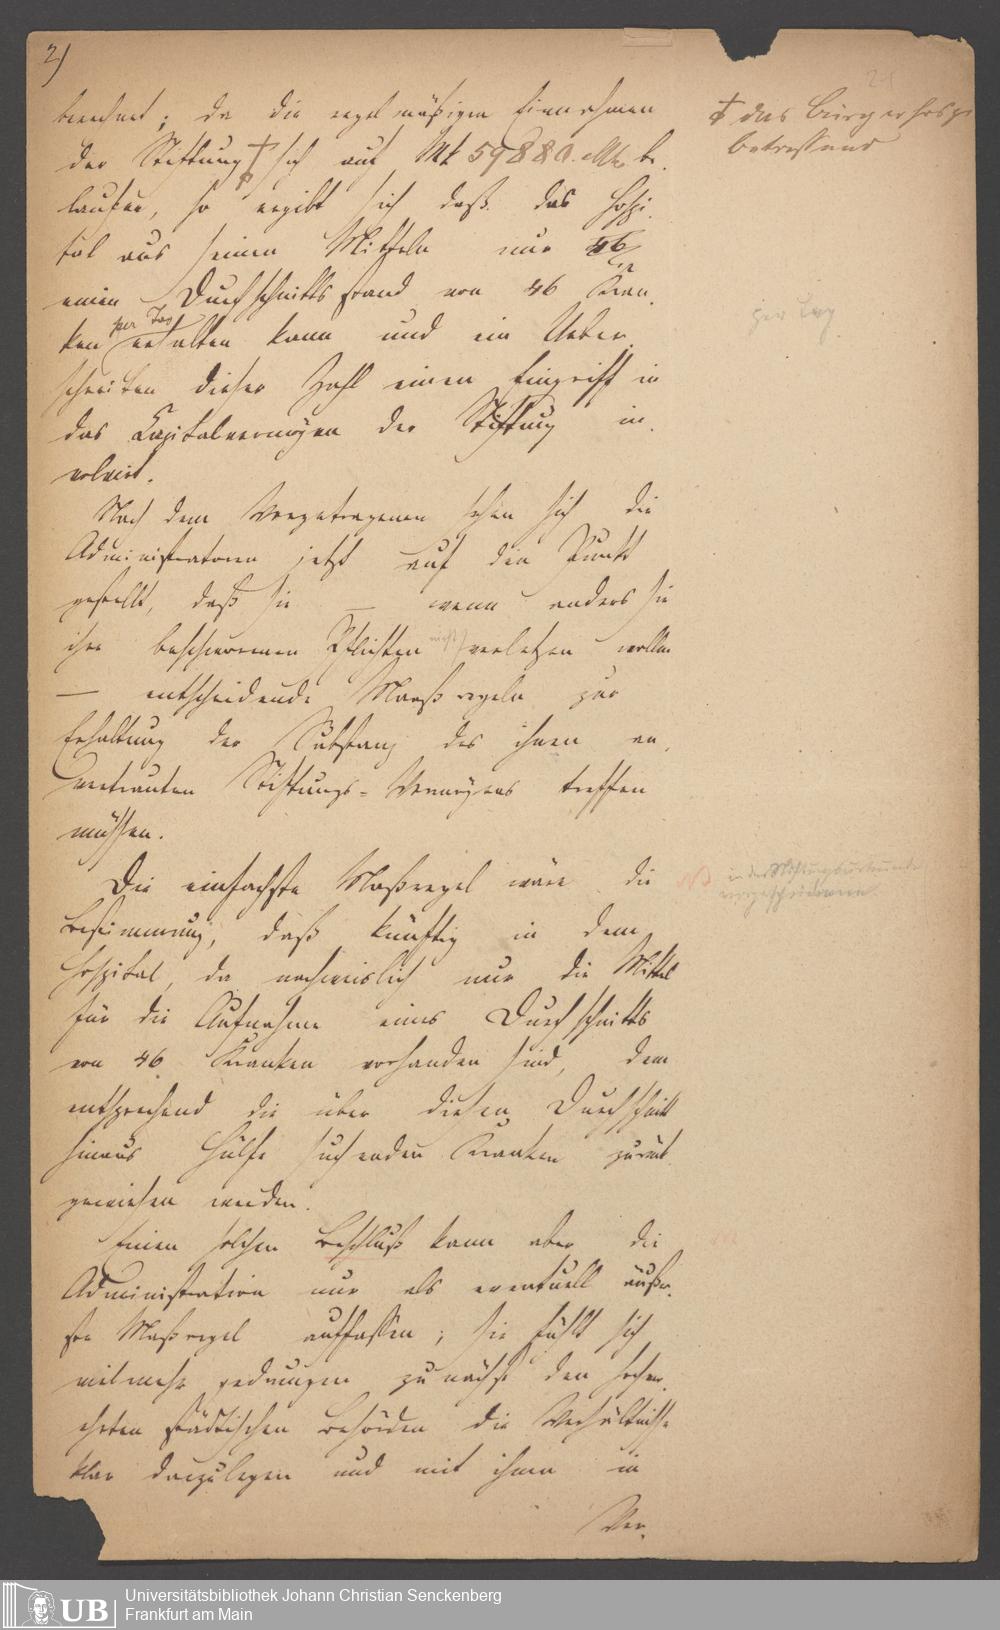 2)
21
berechnet; da die regelmäßigen Einnahmen
der Stiftung † sich auf Mk 59880. be-
laufen, so ergibt sich daß das Hospi-
tal aus seinen Mitteln nur
einen Durchschnittsstand von 46 Kran-
ken per Tag erhalten kann und ein Ueber-
schreiten dieser Zahl einen Eingriff in
das Capitalvermögen der Stiftung in-
volvirt.
Nach dem Vorgetragenen sehen sich die
Administratoren jetzt auf den Punkt
gestellt, daß sie — wenn anders sie
ihre beschworenen Pflichten nicht verletzen wollen
— entscheidende Maaßregeln zur
Erhaltung der Substanz des ihnen an-
vertrauten Stiftungs-Vermögens treffen
müssen.
Die einfachste Maßregel wäre die
Bestimmung, daß künftig in dem
Hospital, da nachweislich nur die Mittel
für die Aufnahme eines Durchschnitts
von 46 Kranken vorhanden sind, dem
entsprechend die über diesen Durchschnitt
hinaus Hülfe suchenden Kranken zurück-
gewiesen werden.
Einen solchen Beschluß kann aber die
Administration nur als eventuell äußer-
ste Maßregel auffassen; sie fühlt sich
vielmehr gedrungen zunächst den hochver-
ehrten städtischen Behörden die Verhältnisse
klar darzulegen und mit ihnen in
Ver-
† das Bürgerhospi
betreffend
per Tag
in der Stiftungsurkunde
vorgeschriebene
Universitätsbibliothek Johann Christian Senckenberg
Frankfurt am Main
UB